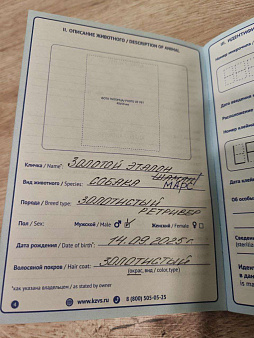 II. ОПИСАНИЕ ЖИВОТНОГО / DESCRIPTION OF ANIMAL
Кличка / Name*: ЗОЛОТОЙ ЭТАЛОН
МАРС
Вид животного / Species: СОБАКА
Порода / Breed type: ЗОЛОТИСТЫЙ
РЕТРИВЕР
Пол / Sex: Мужской / Male ♂ ☑ Женский / Female ♀ ☐
Дата рождения / Date of birth*: 14.09.2025 г.
Волосяной покров / Hair coat: ЗОЛОТИСТЫЙ
(окрас, вид / color, type)
*как указана владельцем / as stated by owner
4 www.kzvs.ru 8 (800) 505-05-25
III. ИДЕНТИФИ
Номер
Дата введения
Расположение
Номер клейм
Дата клей
Об особы